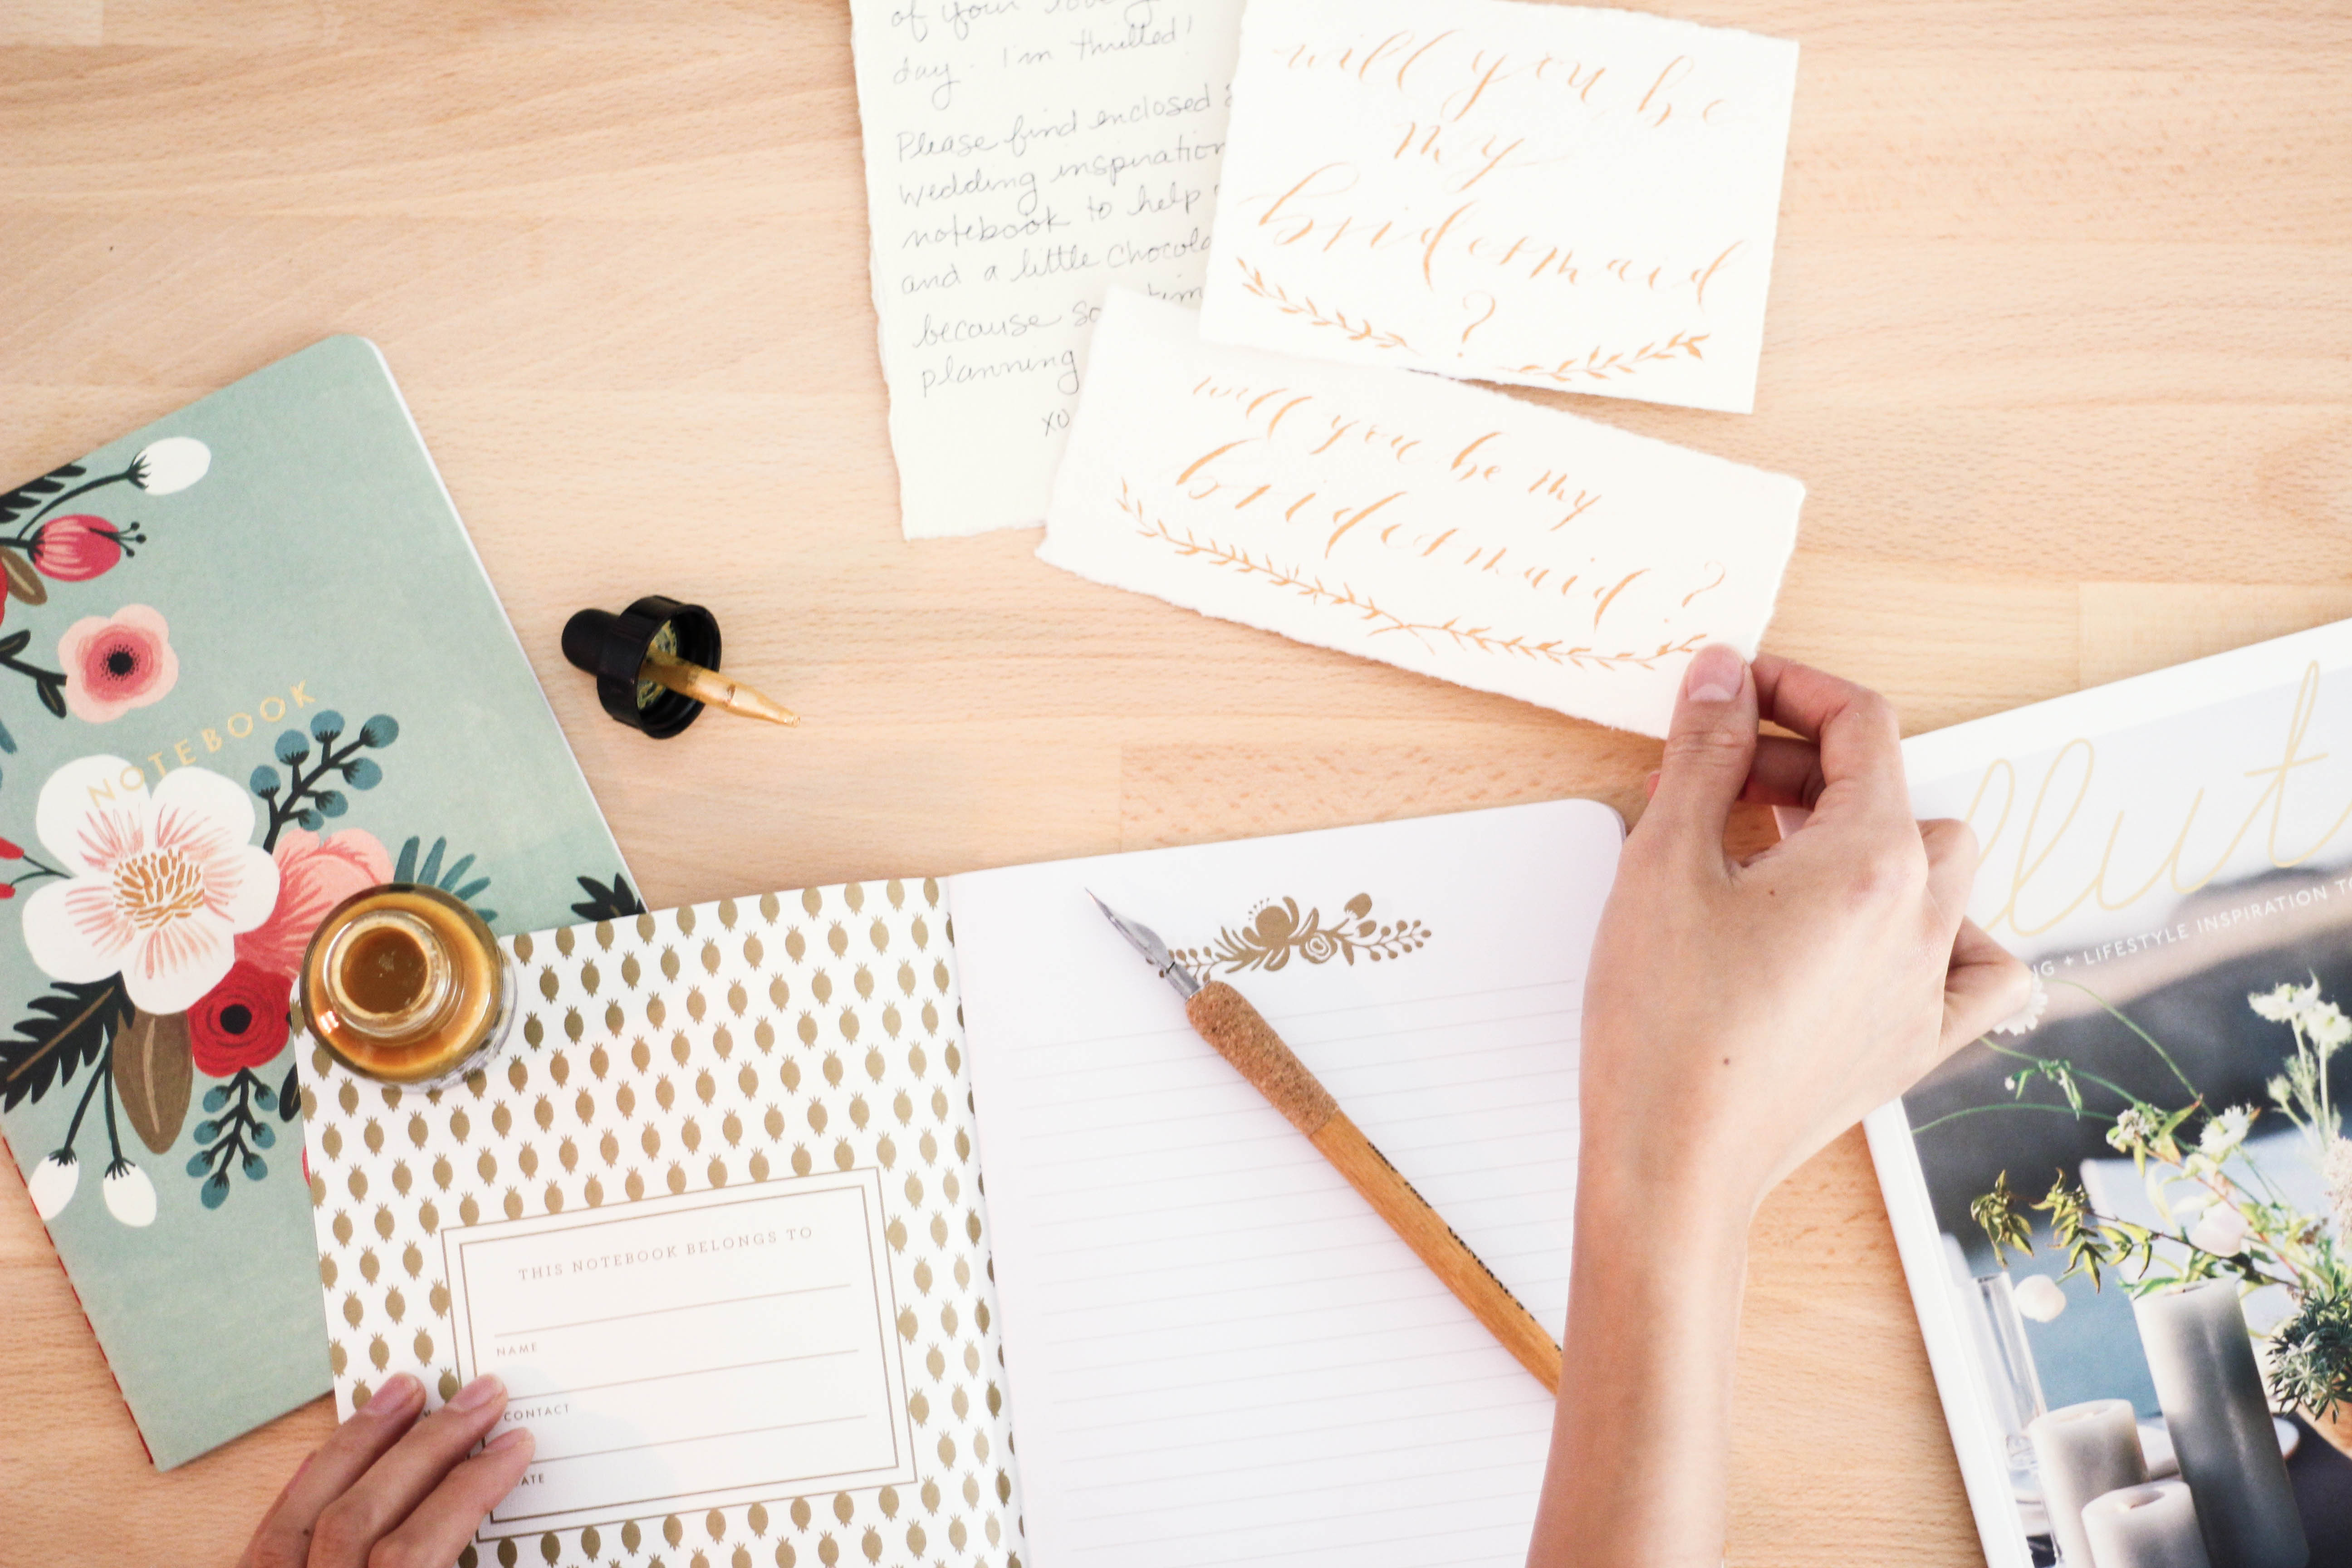 of your
day. I'm thrilled!
Please find enclosed
wedding inspiration
notebook to help
and a little
because
planning
xo
will you be
my
bridesmaid
?
will you be my
bridesmaid?
NOTEBOOK
THIS NOTEBOOK BELONGS TO
NAME
CONTACT
LIFESTYLE INSPIRATION